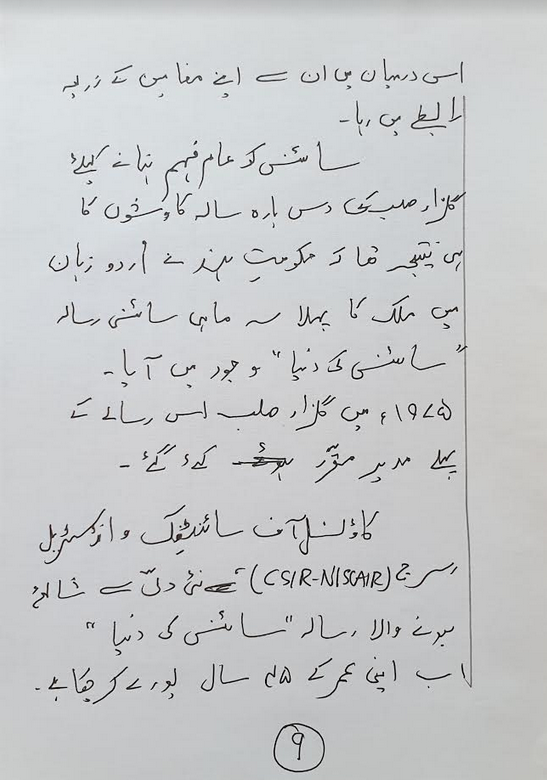 اسی درمیان میں ان سے اپنے مضامین کے ذریعہ
رابطے میں رہا۔
سائنس کو عام فہم بنانے کیلئے
گلزار صاحب کی دس بارہ سالہ کاوشوں کا
ہی نتیجہ تھا کہ حکومتِ ہند نے اُردو زبان
میں ملک کا پہلا سہ ماہی سائنسی رسالہ
"سائنس کی دنیا" وجود میں آیا۔
۱۹۷۵ء میں گلزار صاحب اس رسالے کے
پہلے مدیر مقرّر کیۓ گئے۔
کاؤنسل آف سائنٹیفِک و انڈسٹریل
رسرچ (CSIR-NISCAIR) نئی دلّی سے شائع
ہونے والا رسالہ "سائنس کی دنیا"
اب اپنی عمر کے ۴۵ سال پورے کر چکا ہے۔
۹